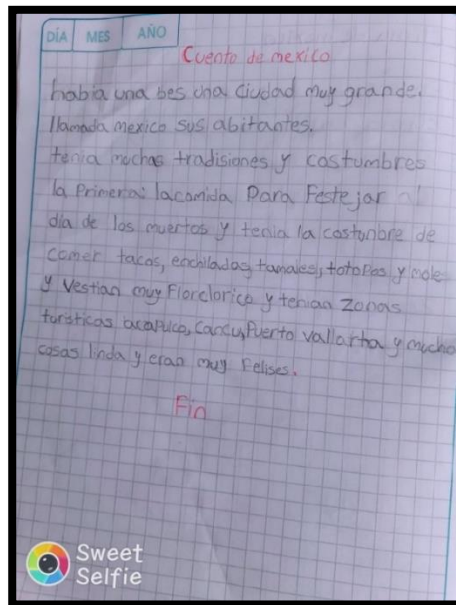 DÍA MES AÑO
Cuento de mexico
habia una bes una ciudad muy grande.
llamada mexico sus abitantes.
tenia muchas tradisiones y costumbres
la Primera: la comida Para Festejar al
día de los muertos y tenia la costonbre de
comer tacos, enchiladas, tamales, totopos y mole
y Vestian muy Florclorico y tenian Zonas
turisticas acapulco, Cancu, Puerto vallartha y mucho
cosas linda y eran muy Felises.
Fin
Sweet
Selfie